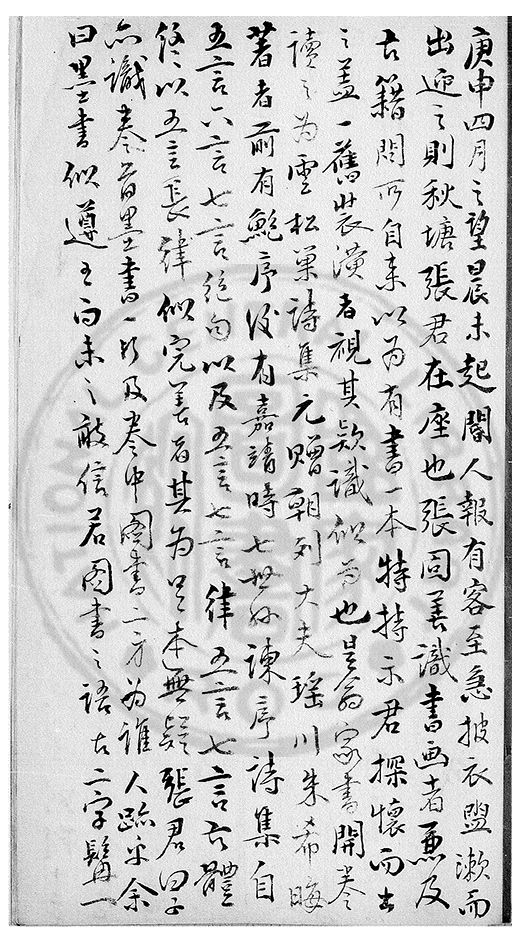 庚申四月之望晨未起閽人報有客至急披衣盥漱而
出迎之則秋塘張君在座也張固善識書画者兼及
古籍問所自来以為有書一本特持示君探懷而出
之盖一舊裝潢者視其款識似為也是翁家書開卷
讀之為雲松巢詩集元贈朝列大夫瑶川朱希晦
著者前有鮑序後有嘉靖時七世孙諫序詩集自
五言六言七言絶句以及五言七言律五言七言古體
終以五言長律似完善者其為足本無疑張君曰子
亦識卷首墨書一行及卷中图書二方為誰人蹟乎余
曰墨書似遵王而未之敢信若图書之語古二字髯一